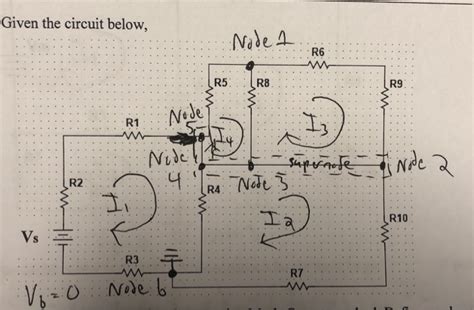 Given the circuit below,
Node 1
R6
R5
R8
R9
Node
5
R1
I4
I3
Node
4
supernode
Node 2
Node 3
R2
I1
R4
I2
R10
Vs
R3
R7
Vb=0
Node 6